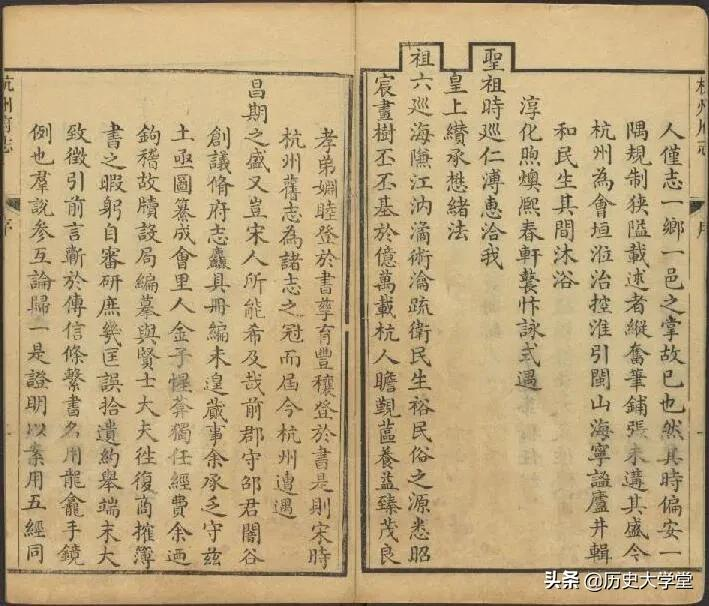 杭州府志
序
人僅志一鄉一邑之掌故已也然其時偏安一
隅規制狹隘載述者縱奮筆鋪張未遘其盛今
杭州為會垣涖治控淮引閩山海寧謐廬井輯
和民生其間沐浴
淳化煦燠熙春軒鼚忭詠式遇
聖祖時巡仁溥惠洽我
皇上纘承懋緒法
祖六巡海隒江汭潏術瀹疏衛民生裕民俗之源悉昭
宸畫樹丕丕基於億萬載杭人瞻觀蕰養益臻茂良
孝弟婣睦登於書孳育豐穰登於書是則宋時
杭州舊志為諸志之冠而屆今杭州遭遇
昌期之盛又豈宋人所能希及哉前郡守邵君闇谷
創議脩府志麤具冊編未遑蕆事余承乏守茲
土亟圖纂成會里人金子犀莽獨任經費余迺
鉤稽故牘設局編摹與賢士大夫徃復商搉簿
書之暇躬自審研庶幾匡誤拾遺約舉端末大
致徵引前言蘄於傳信條繫書名用龍龕手鏡
例也羣說參互論歸一是證明以案用五經同
杭州府志
序
头条 @历史大学堂